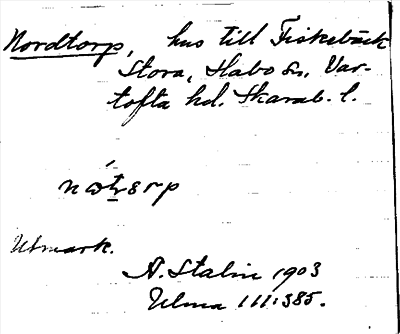 Nordtorp, hus till Fiskebäck
Stora, Habo sn, Var-
tofta hd. Skarab. l.
Utmark.
A. Stalin 1903
Ulma 111:385.